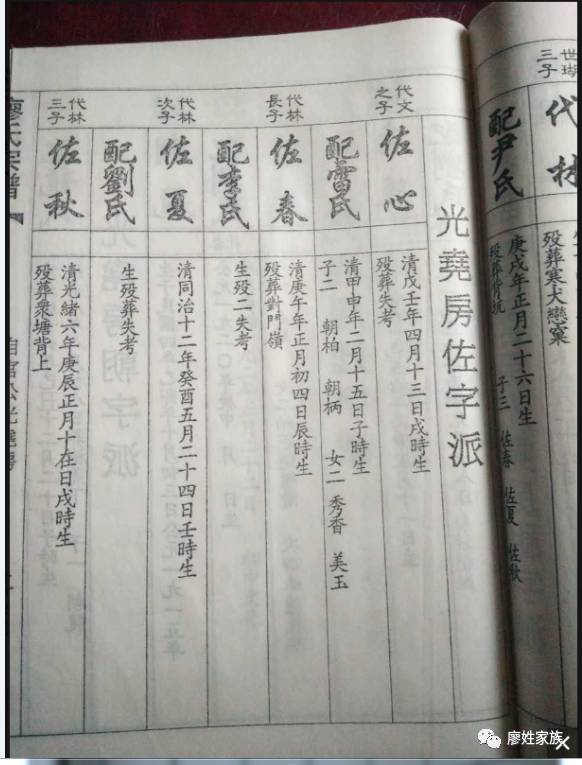 世瑚
三子
代林
殁葬寒大戀窠
配尹氏
庚戌年正月二十六日生
子三 佐春 佐夏 佐秋
光堯房佐字派
代文
之子
佐心
清戊壬年四月十三日戌時生
殁葬失考
清甲申年二月十五日子時生
子二 朝柏 朝柄 女二 秀香 美玉
代林
長子
佐春
清庚午年正月初四日辰時生
殁葬對門嶺
配李氏
生殁二失考
代林
次子
佐夏
清同治十二年癸酉五月二十四日壬時生
配劉氏
生殁葬失考
代林
三子
佐秋
清光緒六年庚辰正月十在日戌時生
殁葬衆塘背上
廖氏宗譜
廖姓家族